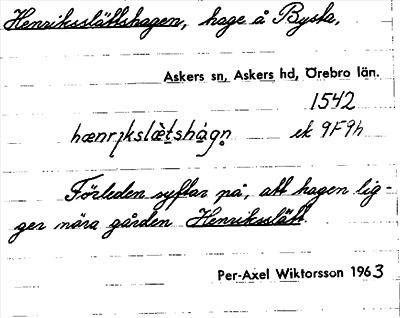 Henriksslättshagen, hage å Bysta,
Askers sn, Askers hd, Örebro län.
1542
hænrikslætshàgn̥ ek 9F9h
Förleden syftar på, att hagen lig-
ger nära gården Henriksslätt.
Per-Axel Wiktorsson 1963